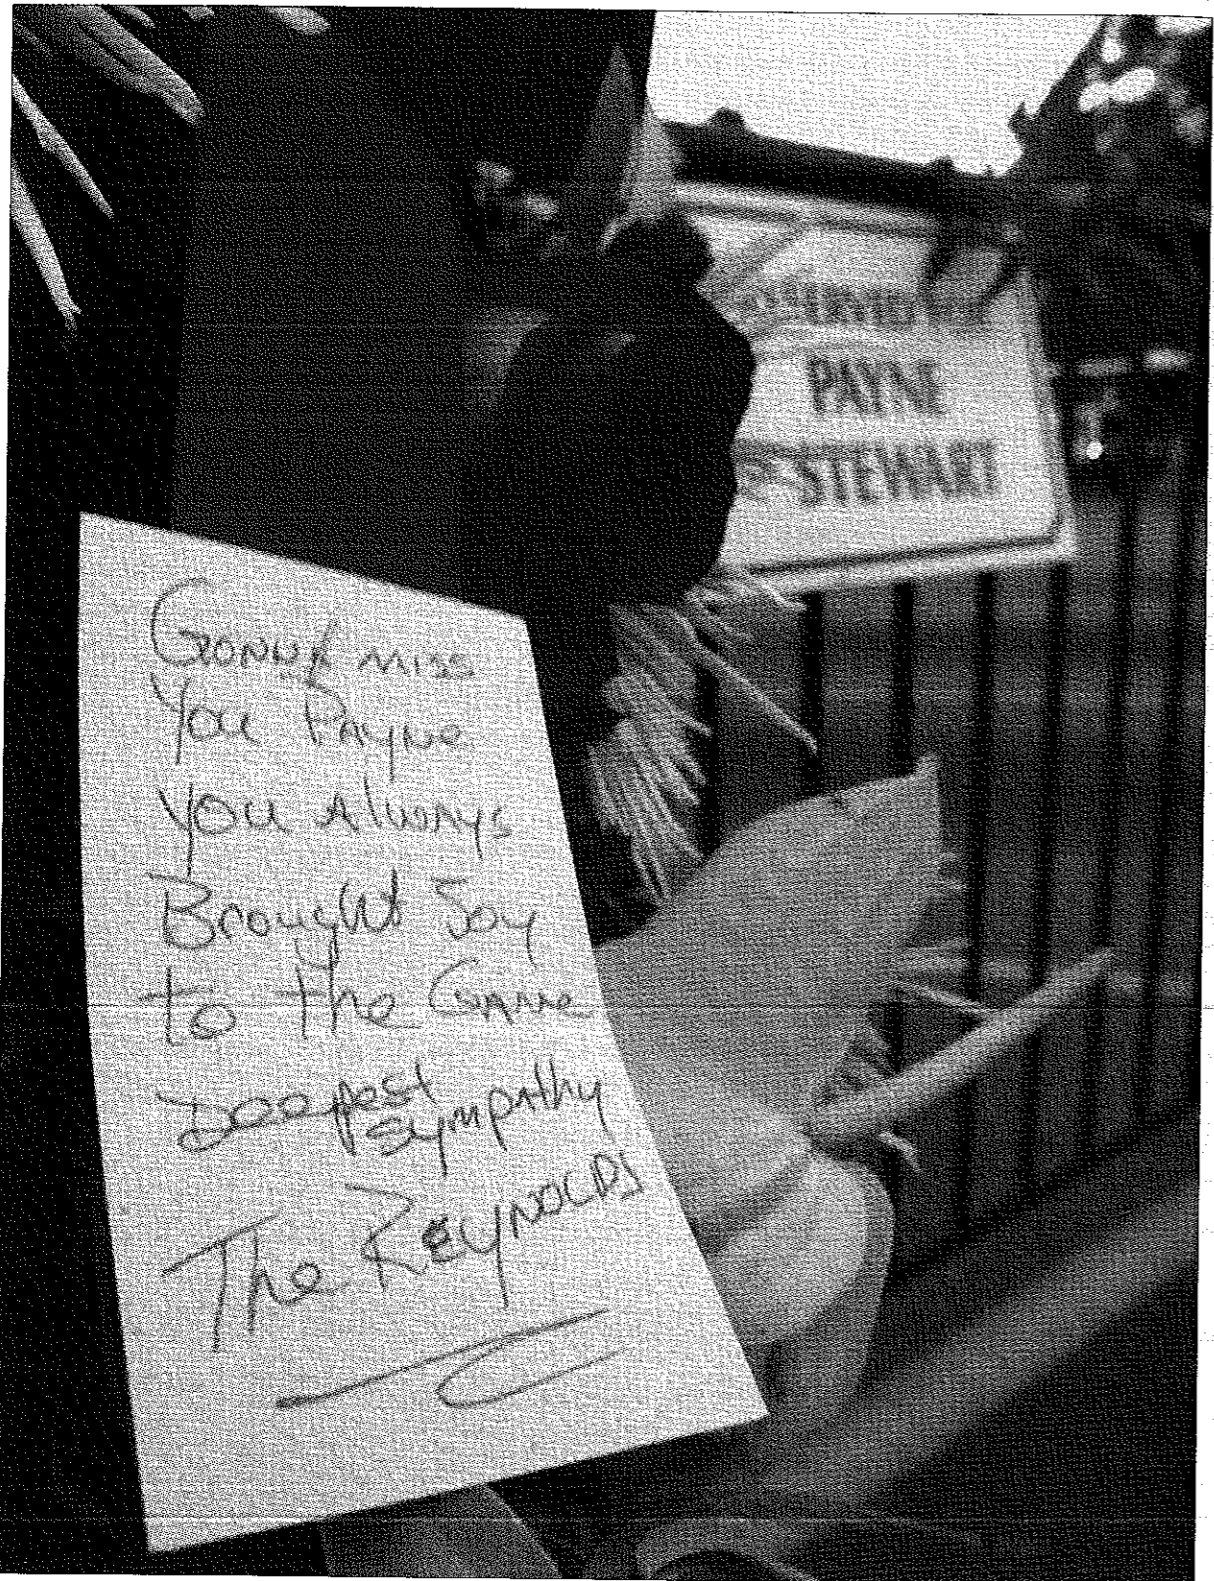 PAYNE
STEWART
Gonna miss
You Payne
You Always
Brought Joy
to the Game
Deepest
sympathy
The Reynolds